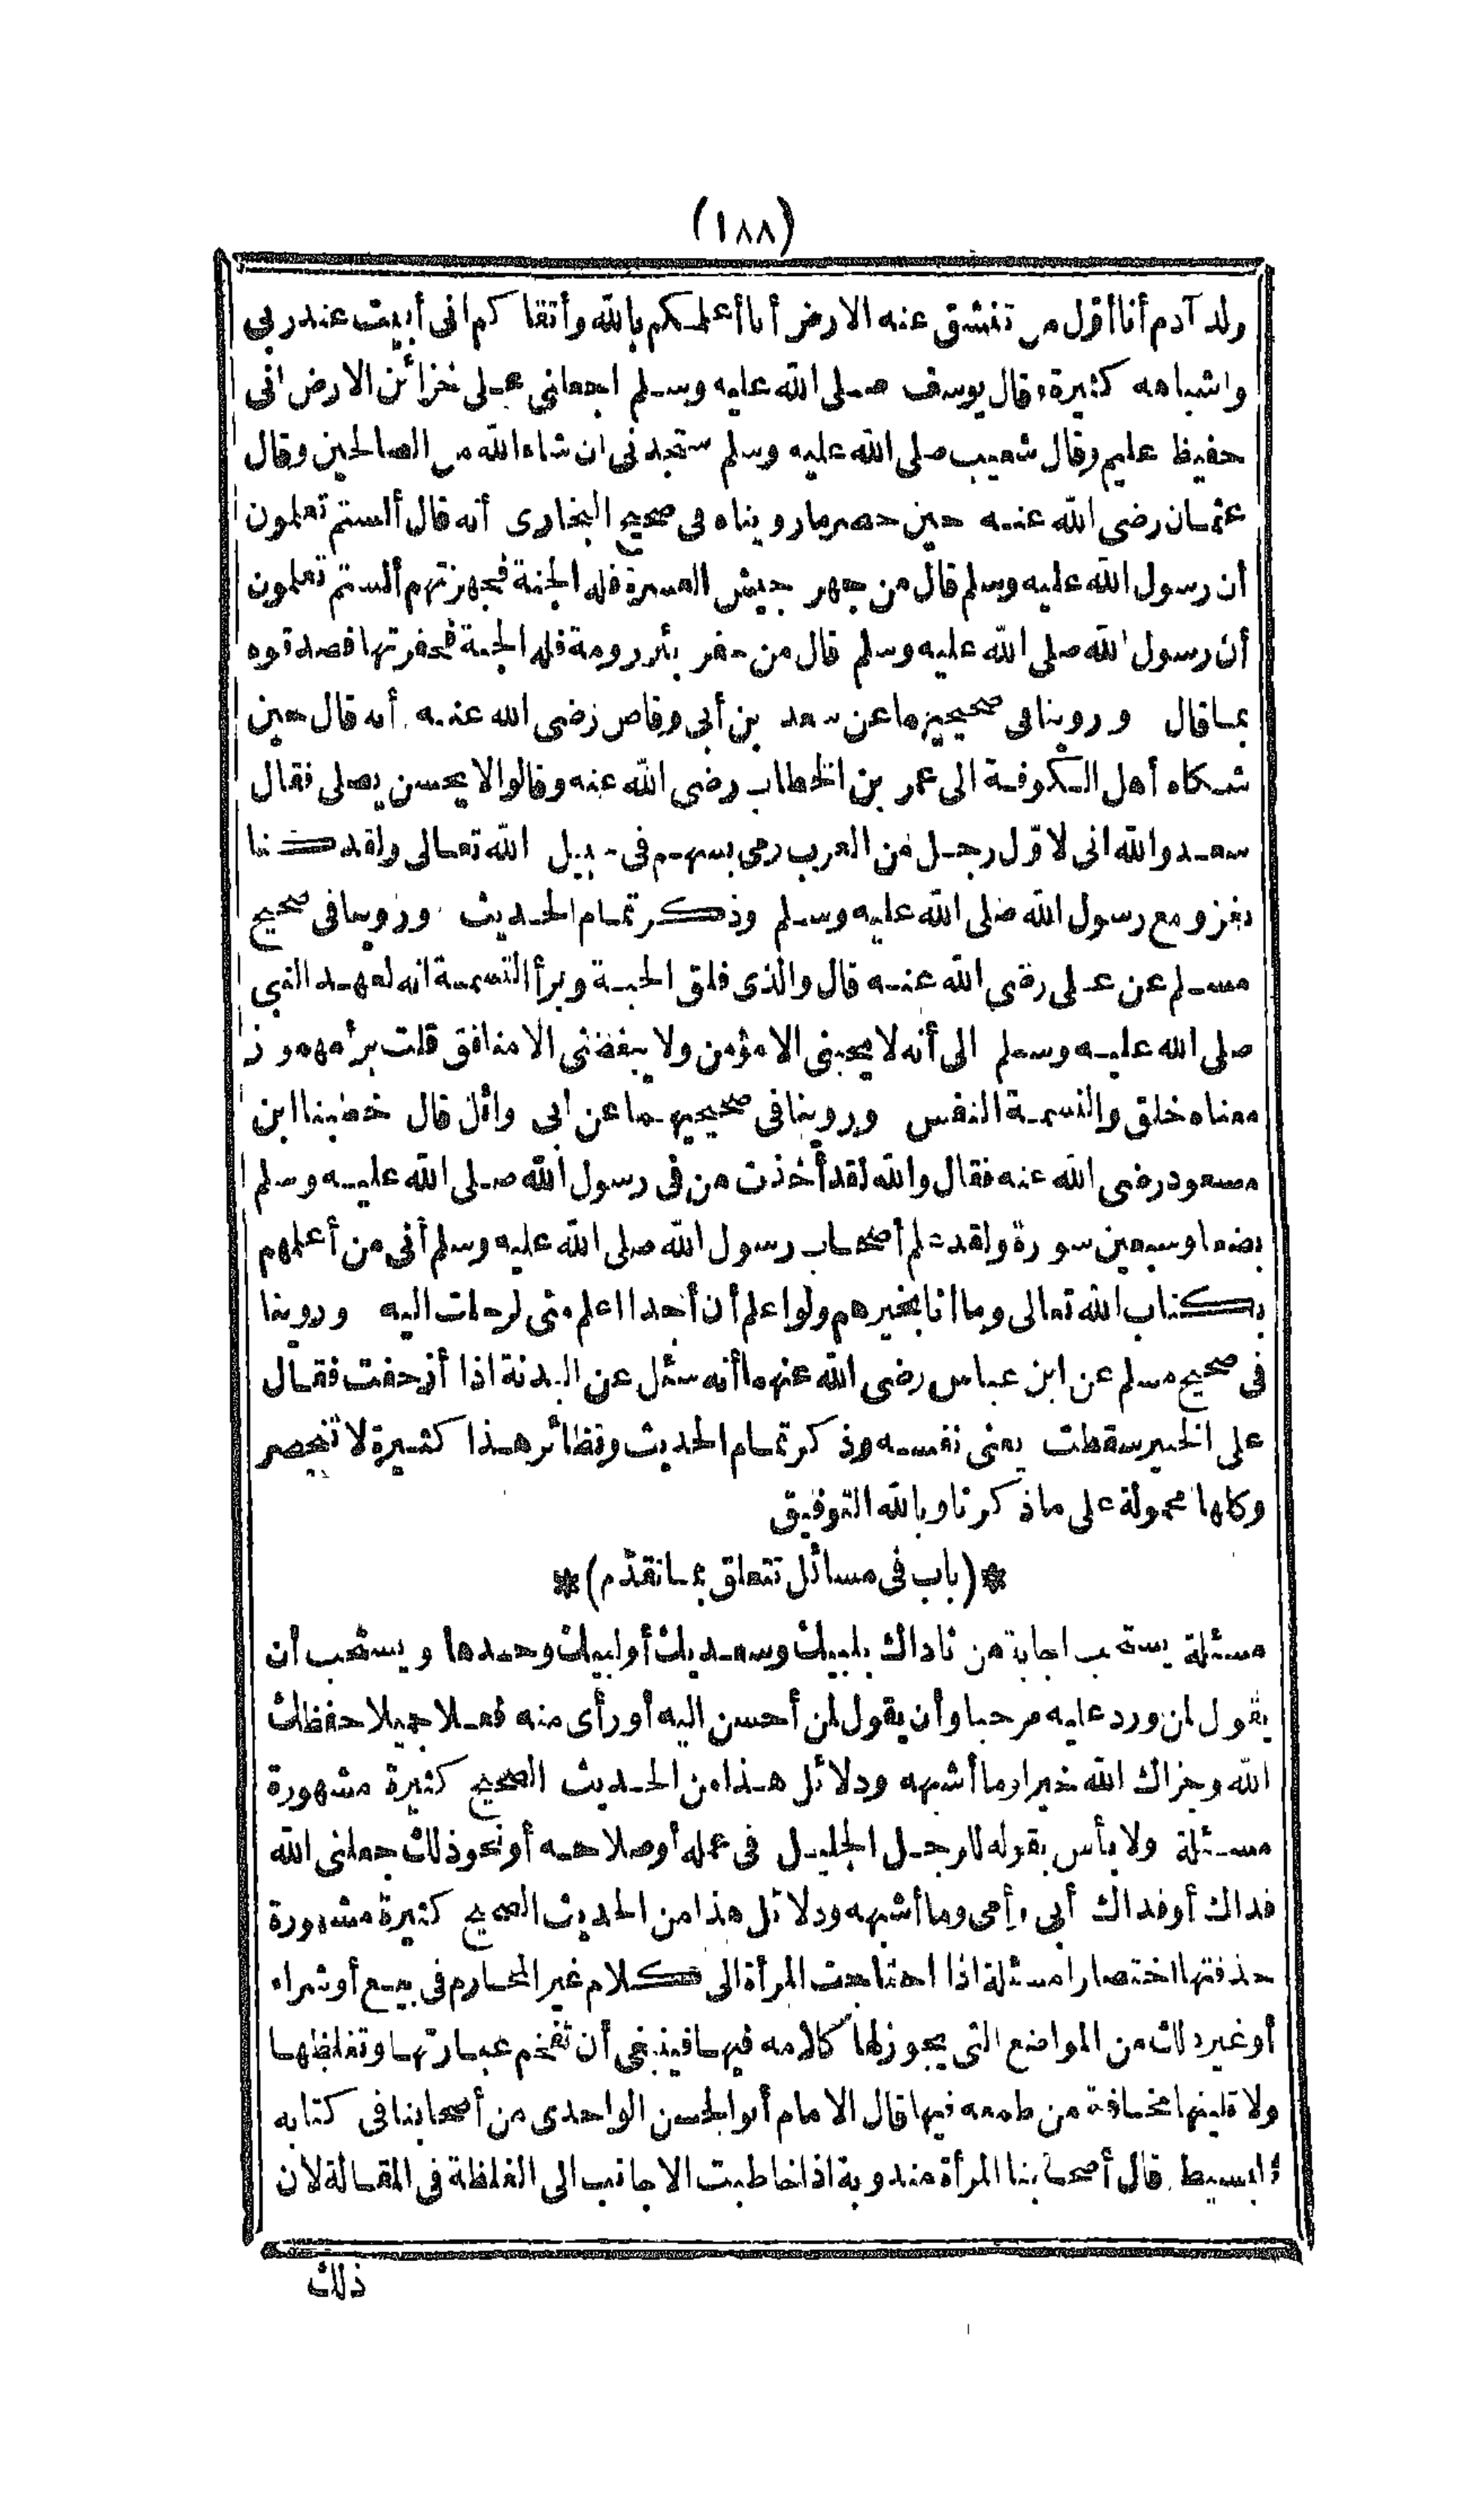 (١٨٨)
ولد آدم أنا أوّل من تنشق عنه الارض أنا أعلمكم بالله وأتقاكم انى أبيت عند ربى
واشباهه كثيرة وقال يوسف صلى الله عليه وسلم اجعلنى على خزائن الارض انى
حفيظ عليم وقال شعيب صلى الله عليه وسلم ستجدنى ان شاء الله من الصالحين وقال
عثمان رضى الله عنه حين حصر ما رويناه فى صحيح البخارى أنه قال ألستم تعلمون
أن رسول الله عليه وسلم قال من جهز جيش العسرة فله الجنة فجهزتهم ألستم تعلمون
أن رسول الله صلى الله عليه وسلم قال من حفر بئر رومة فله الجنة فحفرتها فصدقوه
بما قال وروينا فى صحيحيهما عن سعد بن أبى وقاص رضى الله عنه أنه قال حين
شكاه أهل الكوفة الى عمر بن الخطاب رضى الله عنه وقالوا لا يحسن يصلى فقال
سعد والله انى لاوّل رجل من العرب رمى بسهم فى سبيل الله تعالى ولقد كنا
نغزو مع رسول الله صلى الله عليه وسلم وذكر تمام الحديث وروينا فى صحيح
مسلم عن على رضى الله عنه قال والذى فلق الحبة وبرأ النسمة انه لعهد النبى
صلى الله عليه وسلم الى أنه لا يحبنى الا مؤمن ولا يبغضنى الا منافق قلت برأ مهموز
معناه خلق والنسمة النفس وروينا فى صحيحيهما عن ابى وائل قال خطبنا ابن
مسعود رضى الله عنه فقال والله لقد أخذت من فى رسول الله صلى الله عليه وسلم
بضعا وسبعين سورة ولقد علم أصحاب رسول الله صلى الله عليه وسلم أنى من أعلمهم
بكتاب الله تعالى وما أنا بخيرهم ولو اعلم أن أحدا اعلم منى لرحلت اليه وروينا
فى صحيح مسلم عن ابن عباس رضى الله عنهما أنه سئل عن البدنة اذا أزحفت فقال
على الخبير سقطت يعنى نفسه وذكر تمام الحديث ونظائر هذا كثيرة لا تنحصر
وكلها محمولة على ما ذكرنا وبالله التوفيق
*(باب فى مسائل تتعلق بما تقدّم)*
مسئلة يستحب اجابة من ناداك بلبيك وسعديك أو لبيك وحدها ويستحب أن
يقول لمن ورد عليه مرحبا وأن يقول لمن أحسن اليه أو رأى منه فعلا جميلا حفظك
الله وجزاك الله خيرا وما أشبهه ودلائل هذا من الحديث الصحيح كثيرة مشهورة
مسئلة ولا بأس بقوله للرجل الجليل فى علمه أو صلاحه أو نحو ذلك جعلنى الله
فداك أو فداك أبى وأمى وما أشبهه ودلائل هذا من الحديث الصحيح كثيرة مشهورة
حذفتها اختصارا مسئلة اذا احتاجت المرأة الى كلام غير المحارم فى بيع أو شراء
أو غير ذلك من المواضع التى يجوز لها كلامه فيها فينبغى أن تفخم عبارتها وتغلظها
ولا تلينها مخافة من طمعه فيها قال الامام أبو الحسن الواحدى من أصحابنا فى كتابه
البسيط قال أصحابنا المرأة مندوبة اذا خاطبت الاجانب الى الغلظة فى المقالة لان
ذلك